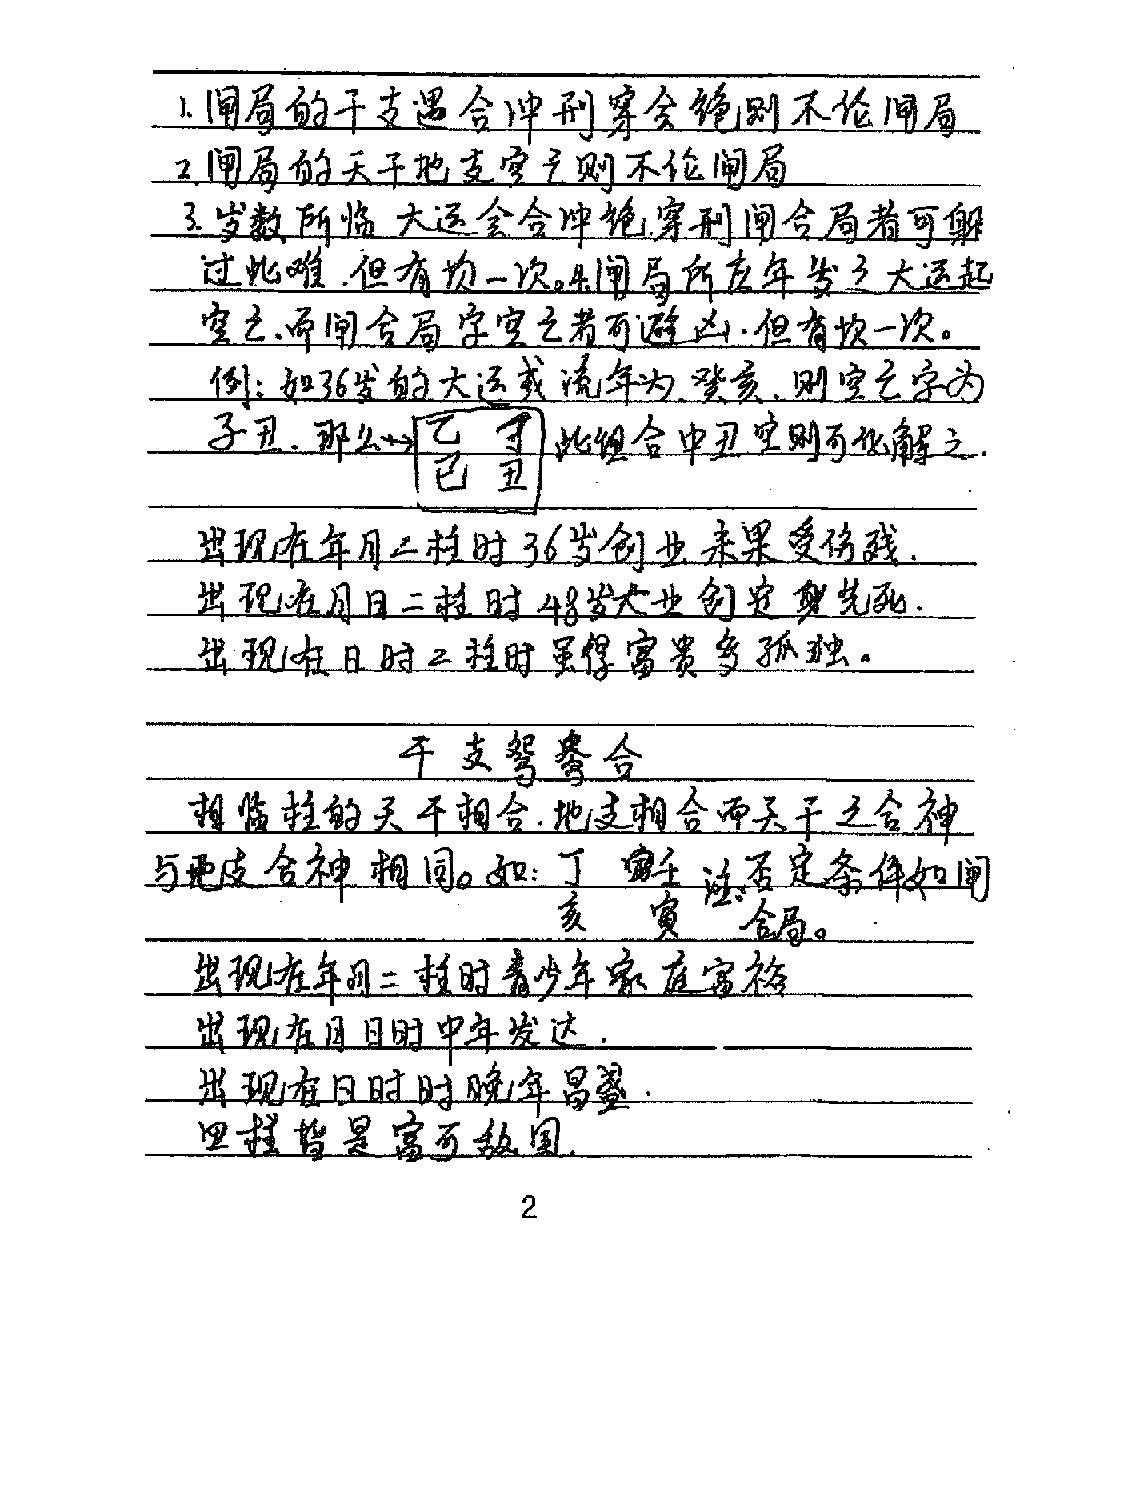 1.闸局的干支遇合冲刑穿会绝则不伦闸局
2.闸局的天干地支空亡则不伦闸局
3.岁数所临大运会合冲绝穿刑闸合局者可解
过此难.但有坎一次。4.闸局所应年岁之大运起
空亡、而闸合局字空亡者可避凶.但有坎一次。
例:如36岁的大运或流年为癸亥.则空亡字为
子丑.那么→ 乙 丁 此组合中丑空则可化解之.
巳 丑
出现在年月二柱时36岁创业未果受伤残.
出现在月日二柱时48岁大业创定身先死.
出现在日时二柱时虽得富贵多孤独。
干支鸳鸯合
相临柱的天干相合.地支相合而天干之合神
与地支合神相同。如: 丁 壬 注:否定条件如闸
亥 寅 合局。
出现在年月二柱时青少年家庭富裕
出现在月日时中年发达.
出现在日时时晚年昌盛.
四柱皆是富可敌国.
2